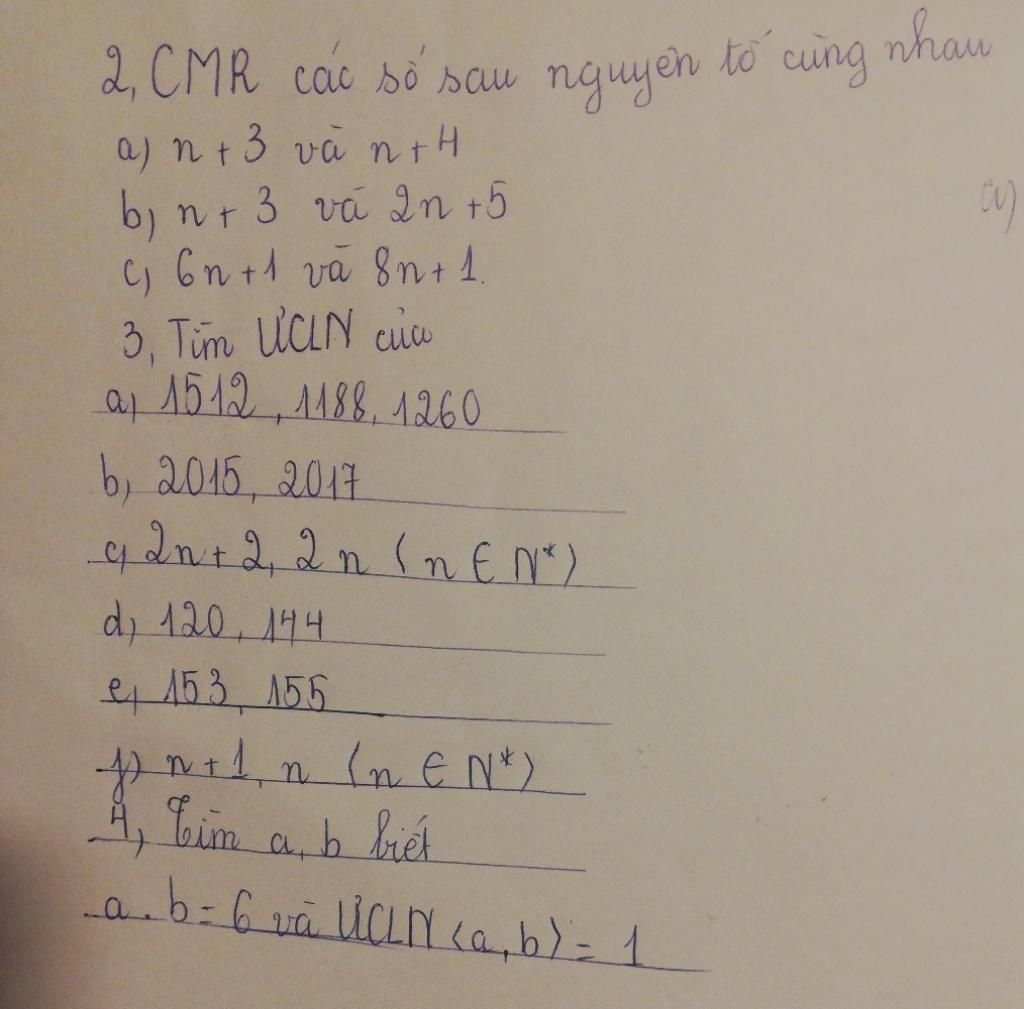 2, CMR các số sau nguyên tố cùng nhau
a) n + 3 và n + 4
b) n + 3 và 2n + 5
a)
c) 6n + 1 và 8n + 1.
3, Tìm ƯCLN của
a) 1512, 1188, 1260
b) 2015, 2017
c) 2n + 2, 2n (n ∈ N*)
d) 120, 144
e) 153, 155
f) n + 1, n (n ∈ N*)
4, Tìm a, b biết
a . b = 6 và ƯCLN (a, b) = 1